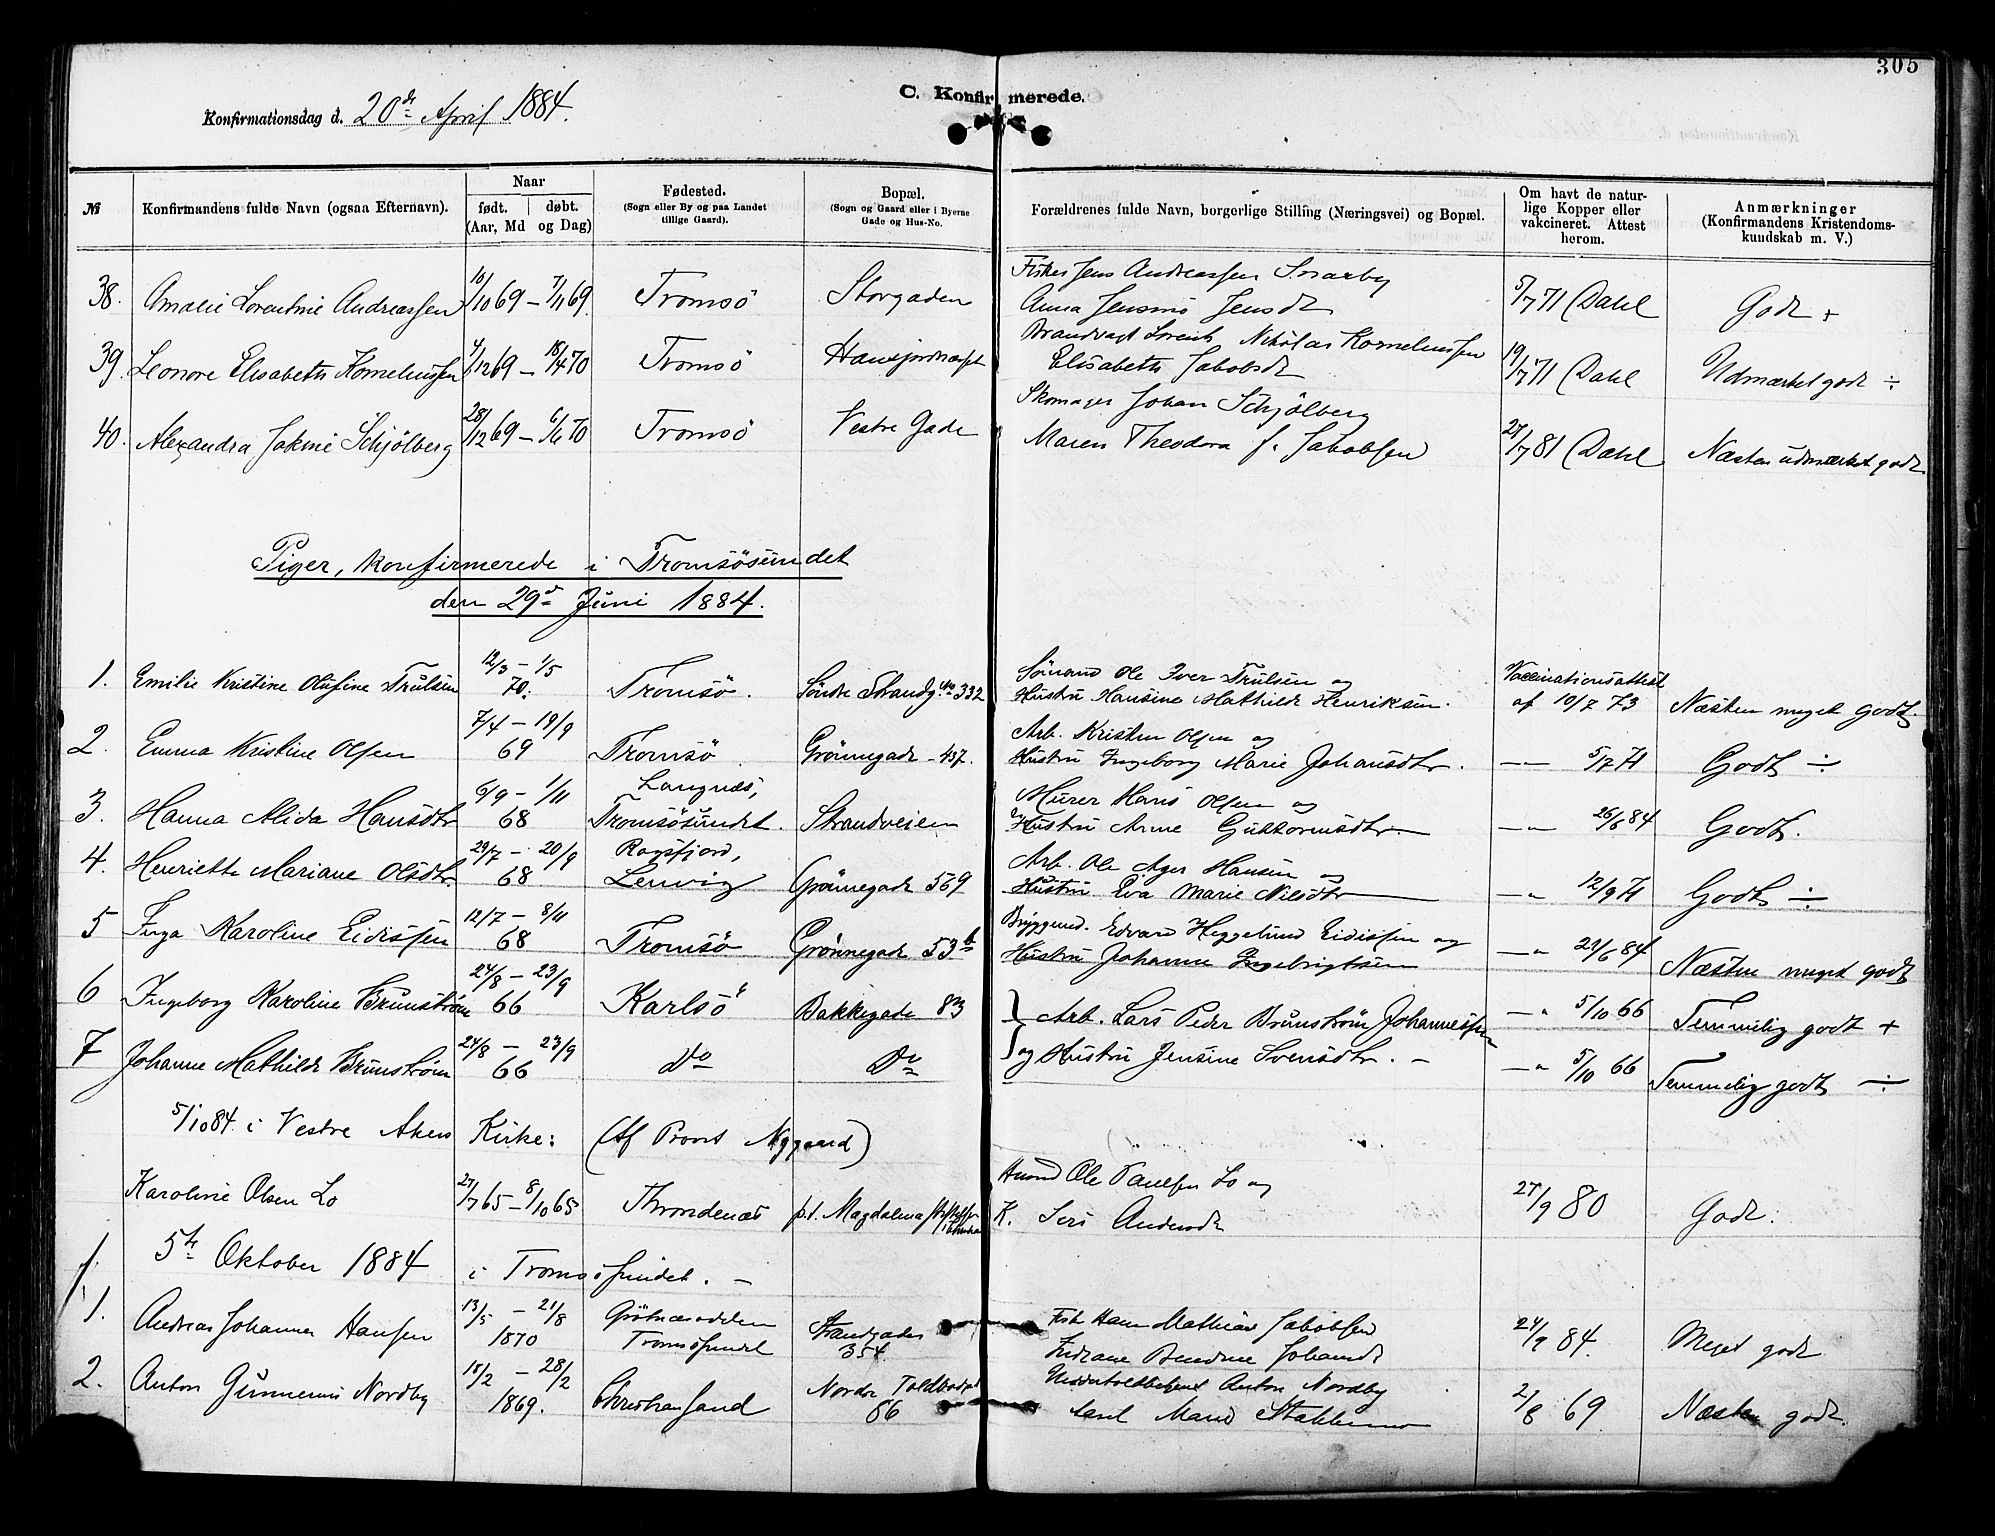 305
C. Konfirmerede.
Konfirmationsdag d. 20de April 1884.
№ Konfirmandens fulde Navn (ogsaa Efternavn). Naar født. døbt. (Aar, Md og Dag) Fødested. (Sogn eller By og paa Landet tillige Gaard). Bopæl. (Sogn og Gaard eller i Byerne Gade og Hus-No. Forældrenes fulde Navn, borgerlige Stilling (Næringsvei) og Bopæl. Om havt de naturlige Kopper eller vakcineret. Attest herom. Anmærkninger (Konfirmandens Kristendomskundskab m. V.)
Fisker Jens Andreassen
38. Amalie Lorentine Andreassen 10/10 69 – 7/11 69. Tromsö Storgaden Anna Jensd 5/7 71 (Dahl Godt +
Nikolai Korneliussen
39. Leonore Elisabeth Korneliussen 4/12 69 – 18/4 70 Tromsö Elisabeth Jakobsd 19/7 71 (Dahl Udmærket godt ÷
Skomager Johan Schjölberg
40. Alexandra Schjölberg 28/12 69 – 6/6 70 Tromsö Vestre Gade Maren Theodora f. Jakobsen 27/7 81 (Dahl Næsten udmærket godt
Piger, konfirmerede i Tromsösundet
den 29de Juni 1884.
12/3 – 1/5 Sömand Ole Iver Trulsen og Vaccinationsattest
1. Emilie Kristine Olufine Trulsen 70. Tromsö. Söndre Strandg. No 332 Hustru Hansine Mathilde Henriksen. af 10/7 73 Næsten meget godt.
7/4 – 19/9 Arb. Kristen Olsen og
2. Emma Kristine Olsen 69 Tromsö Grönnegade 437. Hustru Ingeborg Marie Johansdtr. —„— 5/7 71 Godt ÷
6/9 – 1/11 Langnæs, Murer Hans Olsen og
3. Hanna Alida Hansdtr 68 Tromsösundet. Strandveien Hustru Anne Guttormsdtr —„— 26/6 84 Godt.
29/7 – 20/9 Arb. Ole Hansen og
4. Henriette Mariane Olsdtr. 68 Lenvig Grönnegade 569 Hustru Eva Marie Nilsdtr —„ 12/9 71 Godt ÷
12/7 – 8/11 Edvard Heggelund Eidissen og
5 Inga Karoline Eidissen 68 Tromsö Grönnegade 53 b Hustru Johanne Ingebrigtsen —„ 29/6 84 Næsten meget godt
24/8 – 23/9
6 Ingeborg Karoline Brunström 66 Karlsö Bakkegade 83 Arb. Lars Peder Brunström Johannessen —„ 5/10 66 Temmelig godt +
24/8 – 23/9
7 Johanne Mathilde Brunström 66 Do Do og Hustru Jensine Svensdtr. – —„ 5/10 66 Temmelig godt ÷
5/10 84. i Vestre Akers Kirke: (Af Provst Nygaard)
Ole Paulsen Lo og
Karoline Olsen Lo 27/7 65 – 8/10 65 Throndenæs p.t. Magdalena K. 27/9 80 Godt.
5te Oktober 1884 i Tromsösundet. –
1. Andreas Johannes Hansen 13/5 – 21/8 Fisk. Hans Mathias Jakobsen
1870 Tromsösundet Strandgaden 354. 24/9 84. Meget godt
2. Anton Nordby 15/2 – 28/2 Nordre Anton Nordby
1869. Christiansand 66 2/8 69 Næsten godt.